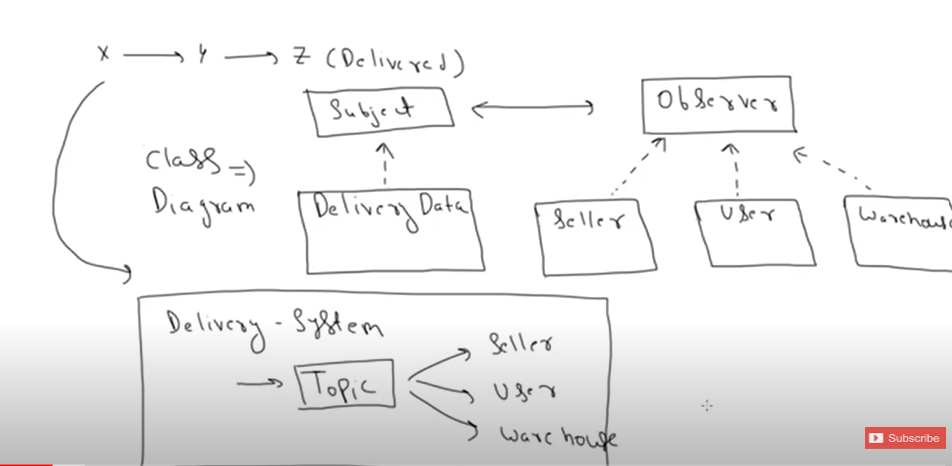 X → Y → Z (Delivered)
Subject ↔ Observer
Class ⇒
Diagram
Delivery Data
Seller
User
Warehouse
Delivery - System
→ Topic
Seller
User
Warehouse
Subscribe